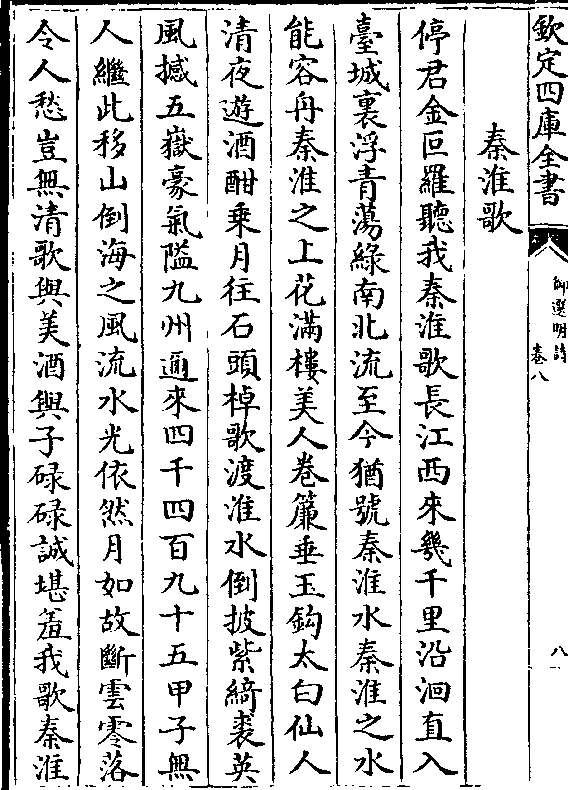 欽定四庫全書
御選明詩
卷八
八
秦淮歌
停君金叵羅聽我秦淮歌長江西來幾千里沿洄直入
臺城裏浮青蕩綠南北流至今猶號秦淮水秦淮之水
能容舟秦淮之上花滿樓美人卷簾垂玉鈎太白仙人
清夜遊酒酣乗月往石頭棹歌渡淮水倒披紫綺裘英
風撼五嶽豪氣隘九州邇來四千四百九十五甲子無
人繼此移山倒海之風流水光依然月如故斷雲零落
令人愁豈無清歌與美酒與子碌碌誠堪羞我歌秦淮